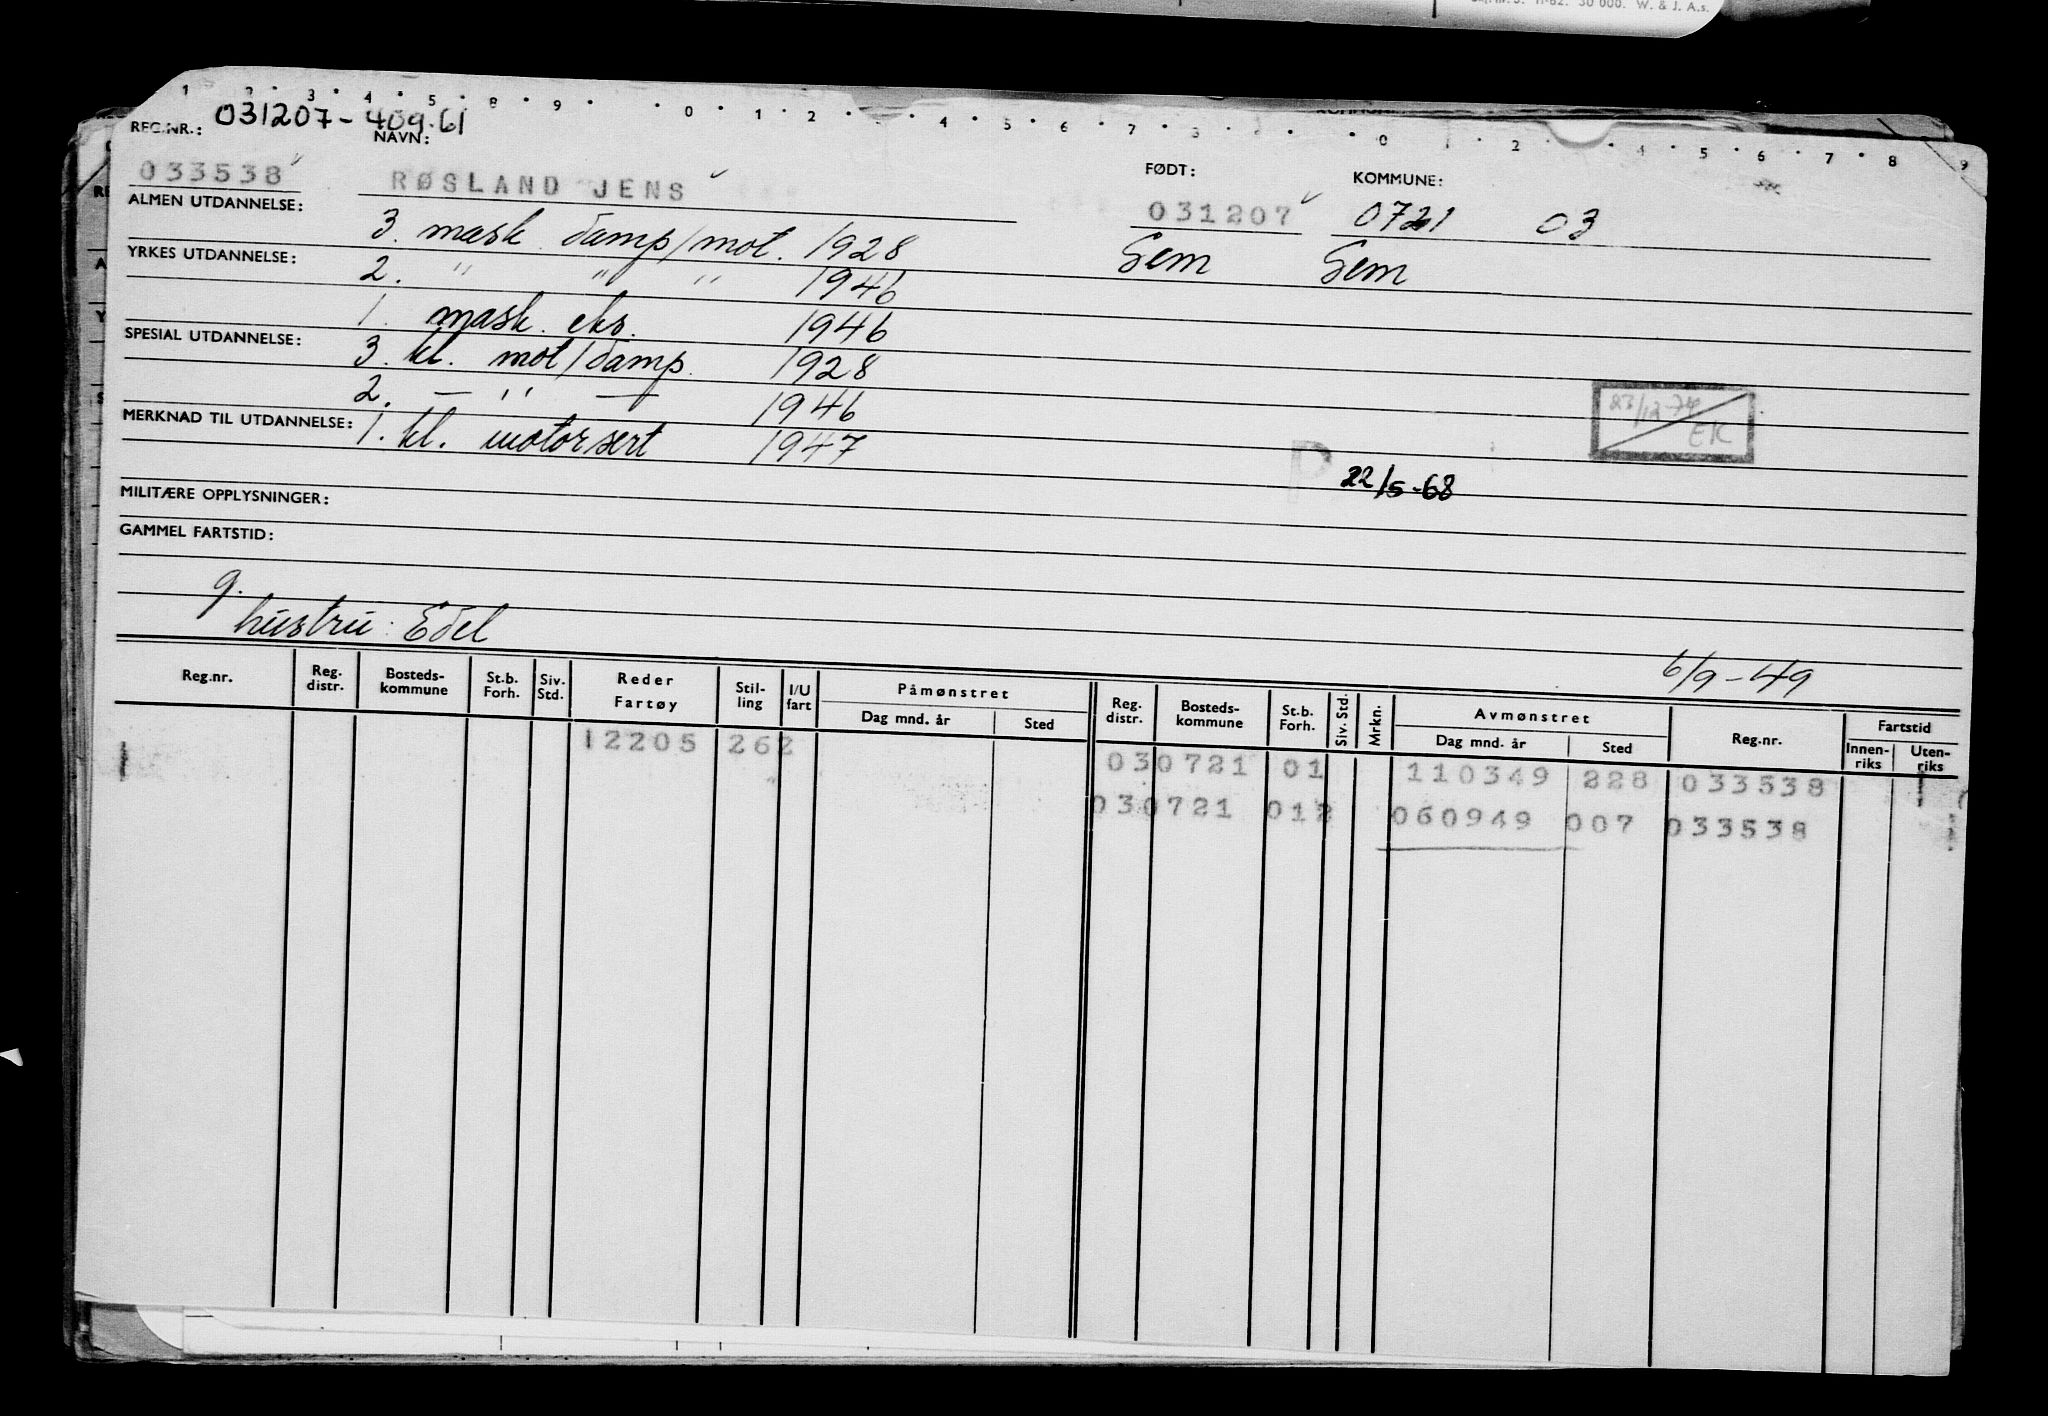 11-62. 30 000. W. & J. A.s.
1 2 3 4 5 8 9 0 1 2 3 4 5 6 7 8 0 1 2 4 5 6 7 8 9
REG.NR.: 031207-409.61
NAVN:
FØDT:
KOMMUNE:
033538 RØSLAND JENS 031207 0721 03
ALMEN UTDANNELSE:
3. mask. damp/mot. 1928 Sem Sem
YRKES UTDANNELSE: 2. " " " 1946
1. mask. eks. 1946
SPESIAL UTDANNELSE: 3. kl. mot/damp. 1928
2. — " — 1946
MERKNAD TIL UTDANNELSE: 1. kl. motorsert 1947
23/12-74
EK
P 22/5-68
MILITÆRE OPPLYSNINGER:
GAMMEL FARTSTID:
g.
hustru: Edel
6/9-49
Reg.nr. Reg. distr. Bosteds- kommune St.b. Forh. Siv. Std. Reder Fartøy Stil- ling I/U fart Påmønstret Dag mnd. år Sted Reg. distr. Bosteds- kommune St.b. Forh. Siv. Std. Mrkn. Avmønstret Dag mnd. år Sted Reg.nr. Fartstid Innen- riks Uten- riks
12205 262 030721 01 110349 228 033538
030721 012 060949 007 033538